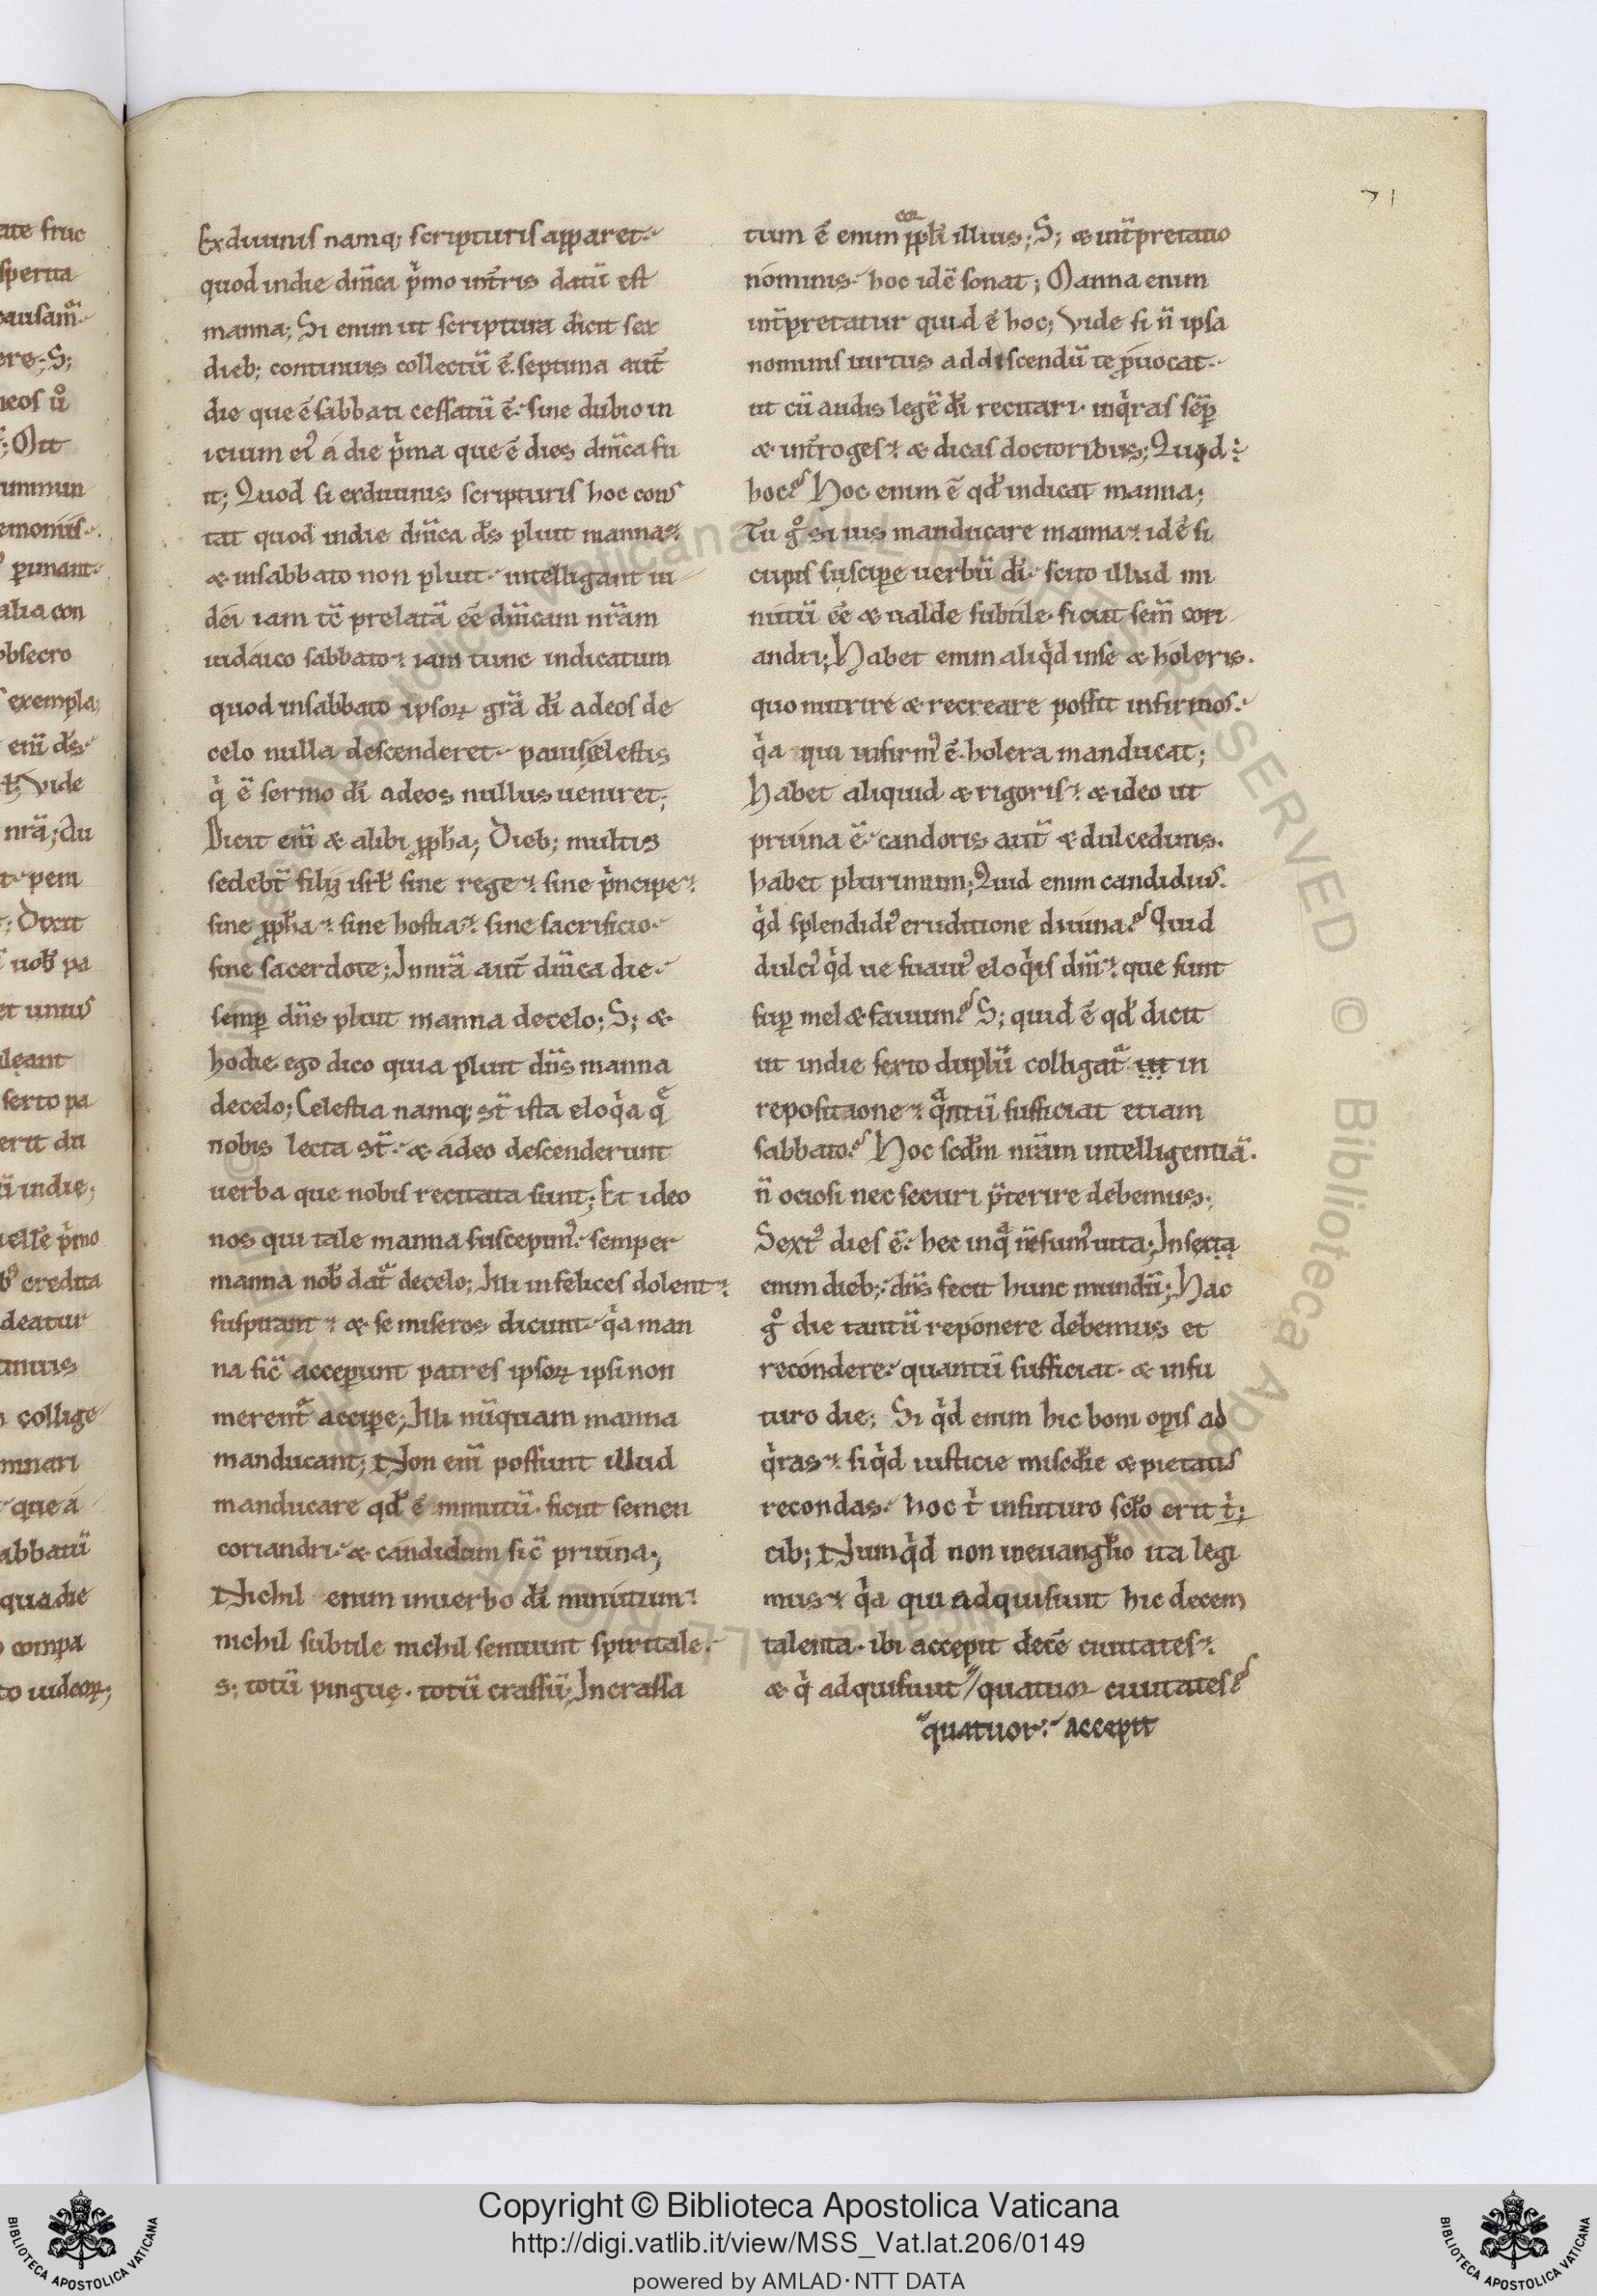 71
Ex diuinis namq; scripturis apparet.
quod indie dñica pͥmo int̃ris datũ est
manna; Si enim ut scriptura dicit sex
dieb; continuis collectũ ẽ. septima aut̃
die que ẽ sabbati cessatũ ẽ. sine dubio in
icium ei᾽ á die pͥma que ẽ dies dñica fu
it; Quod si exdiuinis scripturis hoc cons
tat quod indie dñica d̃s pluit manna.
& insabbato non pluit. intelligant iu
dei iam tc̃ prelatã eẽ dñicam nr̃am
iudáico sabbato. iam tunc indicatum
quod insabbato ipsoꝝ grã dĩ adeos de
celo nulla descenderet. panis celestis
qͥ ẽ sermo dĩ adeos nullus ueniret;
Dicit enĩ & alibi ꝓph̃a; Dieb; multis
sedebt̃ filij isrl̃ sine rege. sine pͥncipe.
sine ꝓph̃a. sine hostia. sine sacrificio.
sine sacerdote; Innrã aut̃ dñica die.
semꝑ dñs pluit manna decelo; S; &
hodie ego dico quia pluit dñs manna
decelo; Celestia namq; st̃ ista eloqͥa q̃
nobis lecta st̃. & adeo descenderunt
uerba que nobis recitata sunt; Et ideo
nos qui tale manna suscepim᾽. semper
manna nob̃ dat̃ decelo; Illi infelices dolent.
suspirant. & se miseros dicunt. qͥa man
na sic̃ acceperunt patres ipsoꝝ ipsi non
merent̃ acciꝑe; Illi nũquam manna
manducant; Non enĩ possunt illud
manducare qd̃ ẽ minutũ. sicut semen
coriandri. & candidum sic̃ pruina;
Nichil enim inuerbo dĩ minutum.
nichil subtile nichil sentiunt spiritale.
s; totũ pingue. totũ crassũ; Incrassa
tum ẽ enim cor ꝓpl̃i illius; S; & int̃pretatio
nominis. hoc idẽ sonat; Manna enim
int̃pretatur quid ẽ hoc; Vide si ñ ipsa
nominis uirtus addiscendũ te ꝓuocat.
ut cũ audis legẽ dĩ recitari. inqͥras sẽꝑ
& int̃roges. & dicas doctoribus; Quid ẽ
hoc? Hoc enim ẽ qd̃ indicat manna;
Tu gͦ si uis manducare manna. id ẽ si
cupis suscipe uerbũ dĩ. scito illud mi
nutũ eẽ & ualde subtile. sicut sem̃ cori
andri; Habet enim aliqͥd inse & holeris.
quo nutrire & recreare possit infirmos.
qͥa qui infirm᾽ ẽ. holera manducat;
Habet aliquid & rigoris. & ideo ut
pruina ẽ. candoris aut̃ & dulcedinis.
habet plurimum; Quid enim candidius.
qͥd splendidi᾽ eruditione diuina? Quid
dulci᾽ qͥd ue suaui᾽ eloqͥis dñi. que sunt
suꝑ mel & fauum? S; quid ẽ qd̃ dicit
ut indie sexto duplũ colligat̃ ut in
repositione. qͣntũ sufficiat etiam
sabbato? Hoc scdm̃ nrãm intelligentiã.
ñ ociosi nec securi p̃terire debemus;
Sext᾽ dies ẽ. hec inqͣ ñc sum᾽ uita; Insexta
enim dieb; dñs fecit hunc mundũ; Hac
gͦ die tantũ repónere debemus et
recóndere. quantũ sufficiat. & infu
turo die; Si qͥd enim hic boni oꝑis ad
qͥras. siqͥd iusticie misc̃die & pietatis
recondas. hoc tͥ infuturo sc̃lo erit tͥ;
cib; Numqͥd non ineuangl̃io ita legi
mus. qͥa qui adquisiuit hic decem
talenta. ibi accepit decẽ ciuitates.
& qͥ adquisiuit ״quatuor ciuitates?
״quatuor. accepit
Copyright © Biblioteca Apostolica Vaticana
http://digi.vatlib.it/view/MSS_Vat.lat.206/0149
powered by AMLAD·NTT DATA